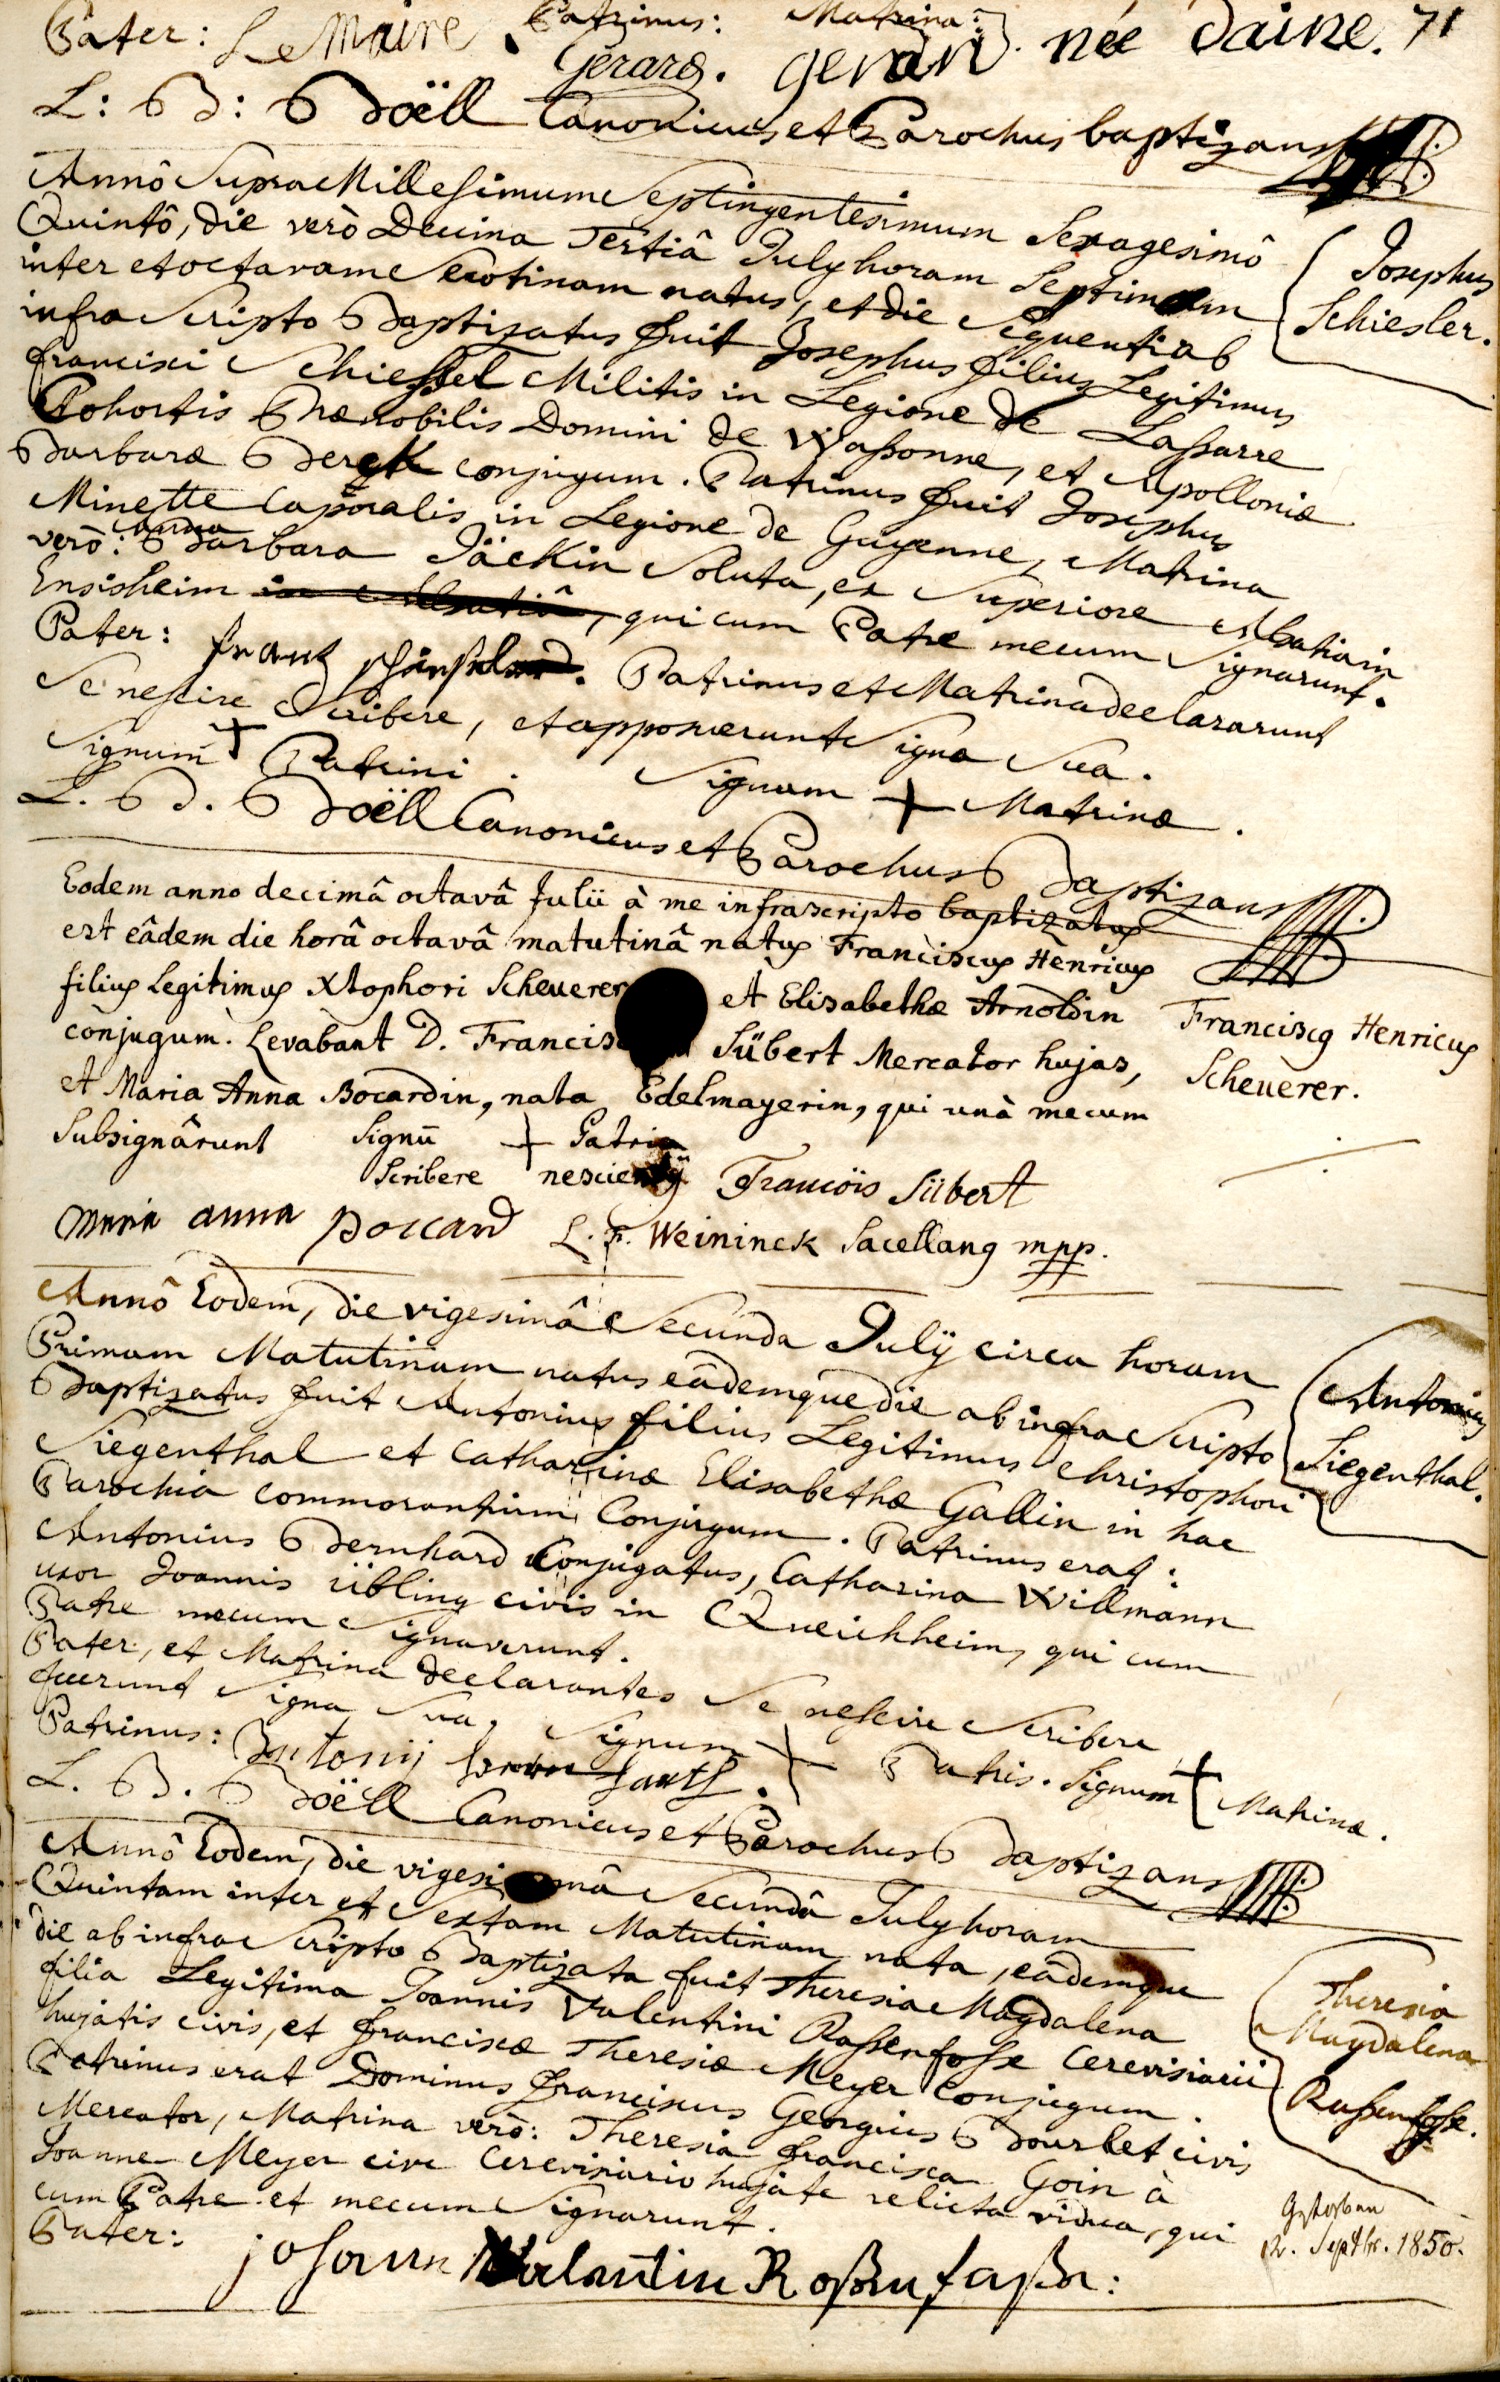 Pater: LeMaire. Patrinus: Gerard. Matrina: gerard née daine. 71
L: B: Boëll Canonicus et Parochus baptizans
Annô Supra Millesimum Septingentesimum Sexagesimô
Quintô, die verò Decima Tertiâ July horam Septimam
inter et octavam Serotinam natus, et die Sequenti ab
infra Scripto Baptizatus fuit Josephus filius Legitimus
francisci Schiessel Militis in Legione de Lassarre
Cohortis Prænobilis Domini de Wassonne, et Apolloniæ
Barbaræ Bergk conjugum. Patrinus fuit Josephus
Minette Caporalis in Legione de Guyenne, Matrina
verò: Barbara Jäckin Soluta, ex Superiore Alsatia in
Ensisheim in Alsatiâ, qui cum Patre mecum Signarunt.
Pater: frantz. Patrinus et Matrina declararunt
Se nescire Scribere, et apposuerunt Signa Sua.
Signum + Patrini. Signum + Matrinæ.
L. B. Boëll Canonicus et Parochus Baptizans
Josephus
Schiesler.
Eodem anno decimâ octavâ Julii à me infrascripto baptizatus
est eâdem die horâ octavâ matutinâ natus Franciscus Henricus
filius legitimus Xtophori Scheuerer et Elisabethæ Arnoldin
conjugum. Levabant D. Francis Sübert Mercator hujas,
et Maria Anna Bocardin, nata Edelmayerin, qui unà mecum
Subsignârunt Signū + Patris
Scribere nescientis François Sübert
Maria anna poccard L. F. Weininck Sacellang mpp.
Franciscg Henricus
Scheuerer.
Annô Eodem, die vigesimâ Secunda Julÿ circa horam
Primam Matutinam natus eâdemque die ab infra Scripto
Baptizatus fuit Antonius filius Legitimus Christophori
Siegenthal et Catharinæ Elisabethæ Gallin in hac
Parochia commorantium Conjugum. Patrinus erat:
Antonius Bernhard Conjugatus, Catharina Willmann
uxor Joannis übling civis in Queichheim, qui cum
Patre mecum Signaverunt.
Pater, et Matrina declarantes Se nescire Scribere
fecerunt Signa Sua, Signum + Patris. Signum + Matrinæ.
Patrinus: Antonij
L. B. Boëll Canonicus et Parochus Baptizans
Antonius
Siegenthal.
Annô Eodem, die vigesimâ Secundâ July horam
Quintam inter et Sextam Matutinam nata, eâdemque
die ab infra Scripto Baptizata fuit Theresia Magdalena
filia Legitima Joannis Valentini Rassenfosse Cerevisiarii
hujatis civis, et franciscæ Theresiæ Meyer Conjugum.
Patrinus erat Dominus franciscus Georgius Bourlet civis
Mercator, Matrina verò: Theresia francisca Goin à
Joanne Meyer cive Cerevisiario hujate relicta vidua, qui
cum Patre et mecum Signarunt.
Pater: johann Valentin Roßenfaßer:
Theresia
Magdalena
Rassenfosse.
Gestorben
12. Septbr. 1850.